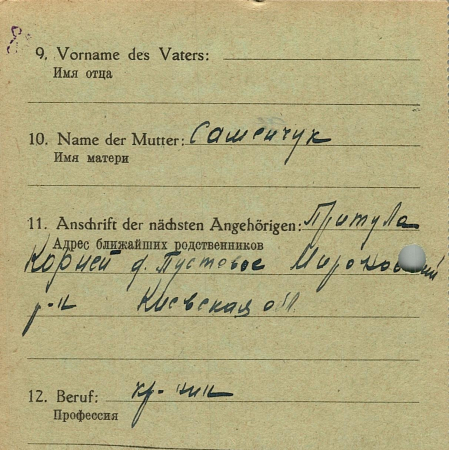 9. Vorname des Vaters:
Имя отца
10. Name der Mutter: Сашейчук
Имя матери
11. Anschrift der nächsten Angehörigen: Притула
Адрес ближайших родственников
Корней д. Пустовое Мироновский
р-н Киевская обл.
12. Beruf: кр-нин
Профессия